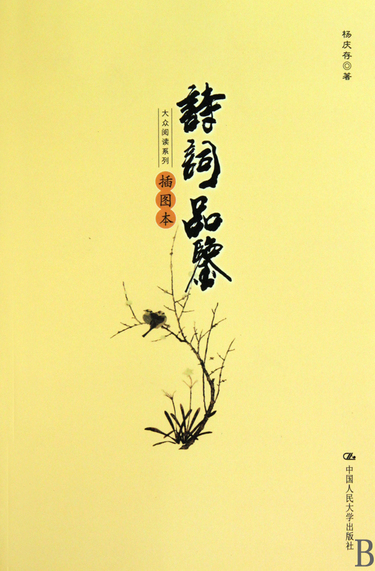 杨庆存◎著
詩詞品鑒
大众阅读系列
插图本
中国人民大学出版社
B